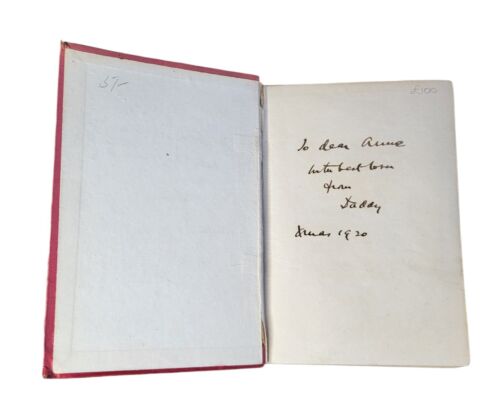 5/-
£100
To dear Anne
With best love
from
Daddy
Xmas 1920